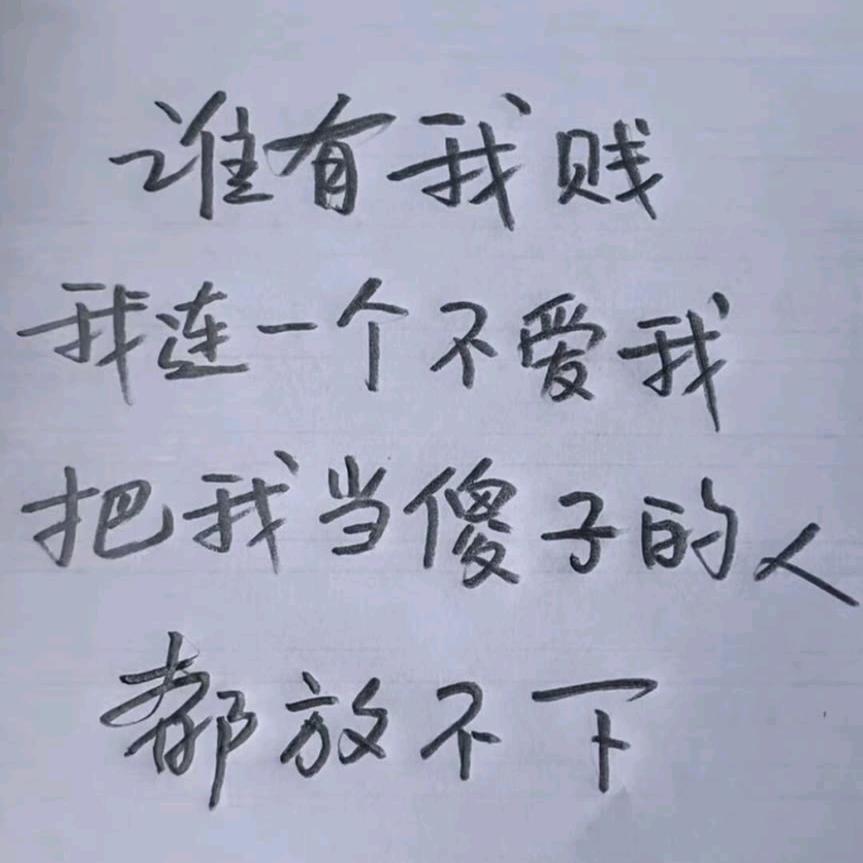 谁有我贱
我连一个不爱我
把我当傻子的人
都放不下